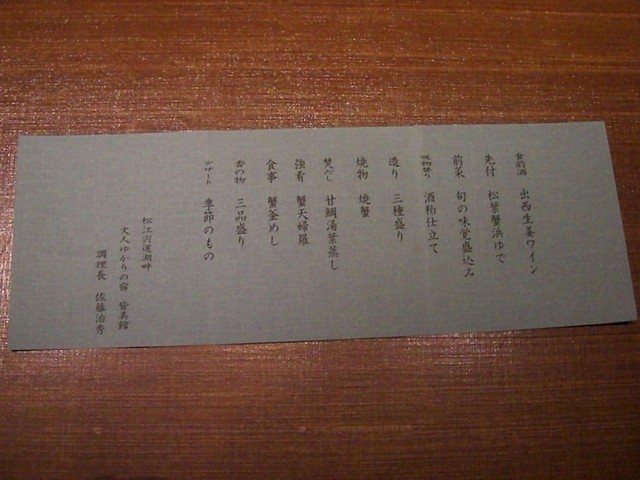 食前酒 出西生姜ワイン
先付 松葉蟹浜ゆで
前菜 旬の味覚盛込み
吸物替り 酒粕仕立て
造り 三種盛り
焼物 焼蟹
焚だし 甘鯛湯葉蒸し
強肴 蟹天婦羅
食事 蟹釜めし
香の物 三品盛り
デザート 季節のもの
松江宍道湖畔
文人ゆかりの宿 皆美館
調理長 佐藤治秀